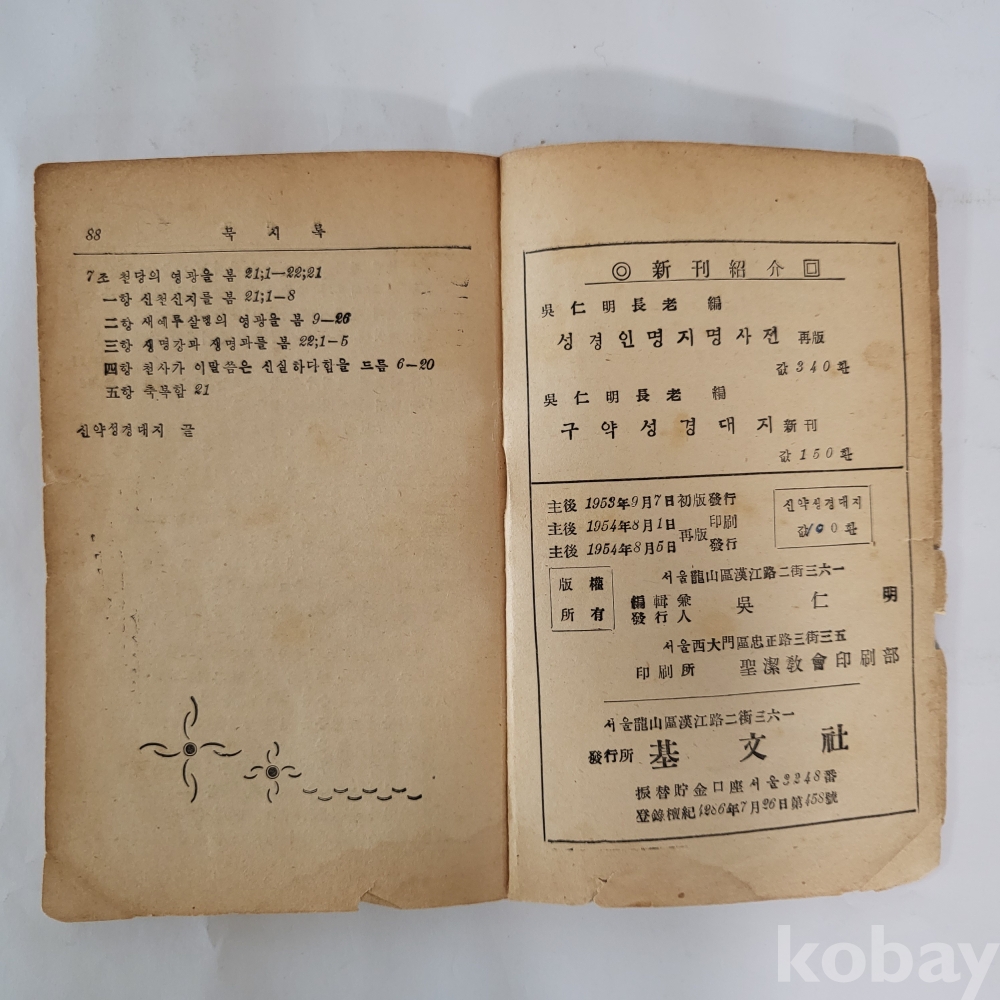 88 묵 시 록
7조 천당의 영광을 봄 21;1—22;21
一항 신천신지를 봄 21;1—8
二항 새예루살렘의 영광을 봄 9—26
三항 생명강과 생명과를 봄 22;1—5
四항 천사가 이말씀은 신실하다힘을 드름 6—20
五항 축복함 21
신약성경대지 끝
◎ 新刊紹介 回
吳仁明長老 編
성경인명지명사전 再版
값 340환
吳仁明長老 編
구약성경대지 新刊
값 150환
主後 1953年9月7日 初版發行
主後 1954年8月1日 再版 印刷
主後 1954年8月5日 發行
신약성경대지
값100환
版權
所有
서울龍山區漢江路二街三六一
編輯兼
發行人 吳仁明
서울西大門區忠正路三街三五
印刷所 聖潔敎會印刷部
서울龍山區漢江路二街三六一
發行所 基文社
振替貯金口座서울3248番
登錄檀紀4286年7月26日第458號
kobay